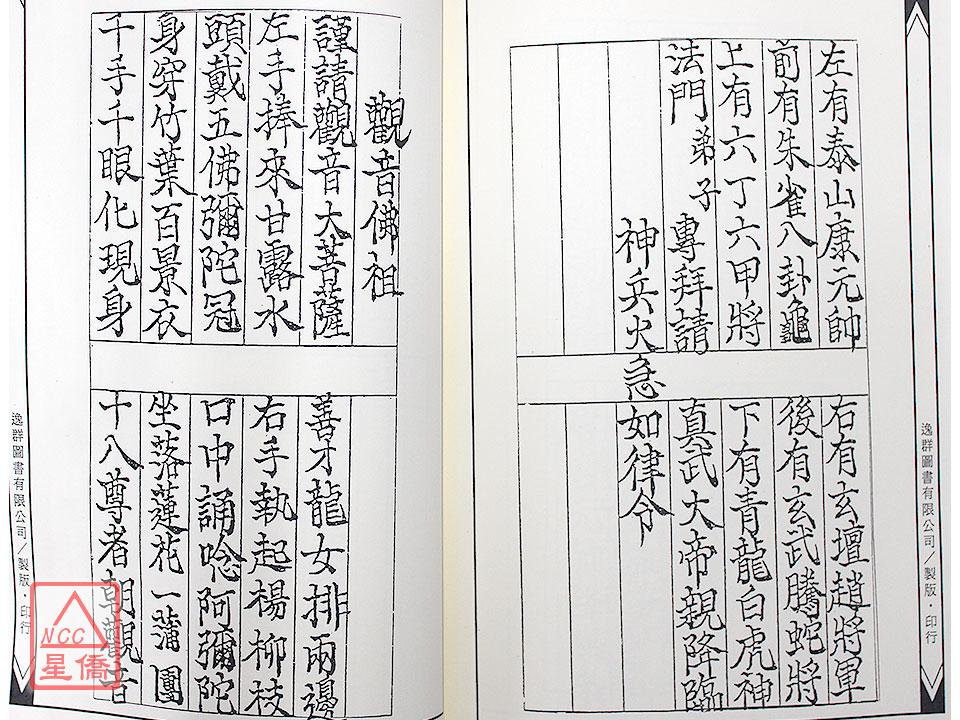 左有泰山康元帥
右有玄壇趙將軍
前有朱雀八卦龜
後有玄武騰蛇將
上有六丁六甲將
下有青龍白虎神
法門弟子專拜請
真武大帝親降臨
神兵火急如律令
逸群圖書有限公司／製版・印行
觀音佛祖
謹請觀音大菩薩
善才龍女排兩邊
左手捧來甘露水
右手執起楊柳枝
頭戴五佛彌陀冠
口中誦唸阿彌陀
身穿竹葉百景衣
坐落蓮花一蒲團
千手千眼化現身
十八尊者朝觀音
逸群圖書有限公司／製版・印行
NCC
星僑